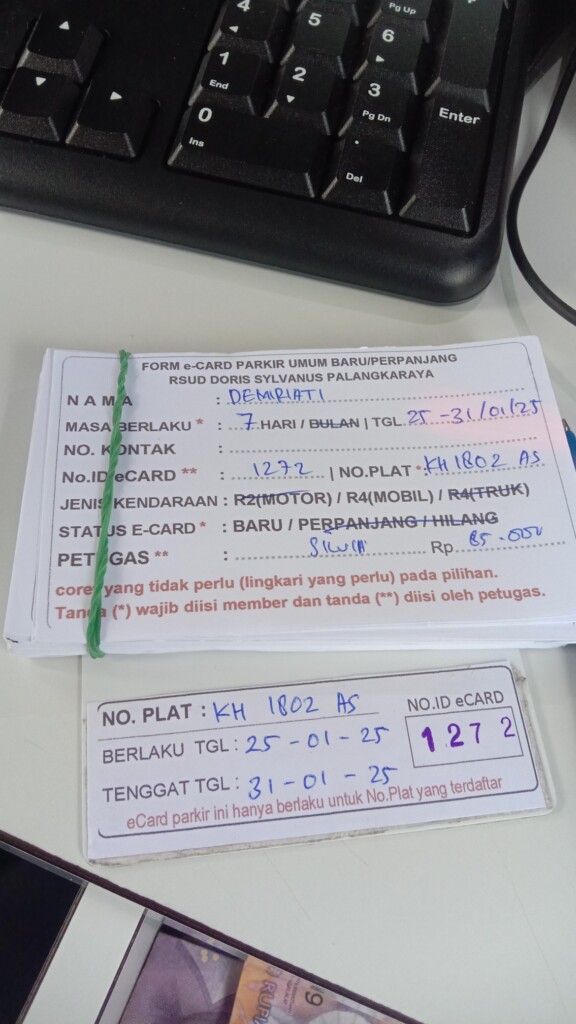 4
5
6
Pg Up
1
End
2
3
Pg Dn
Enter
0
Ins
.
Del
FORM e-CARD PARKIR UMUM BARU/PERPANJANG
RSUD DORIS SYLVANUS PALANGKARAYA
NAMA : DEMIRIATI
MASA BERLAKU * : 7 HARI / BULAN | TGL 25 - 31/01/25
NO. KONTAK :
No.ID eCARD ** : 1272 | NO.PLAT * KH 1802 AS
JENIS KENDARAAN : R2(MOTOR) / R4(MOBIL) / R4(TRUK)
STATUS E-CARD * : BARU / PERPANJANG / HILANG
PETUGAS ** : Rp 85.000
coret yang tidak perlu (lingkari yang perlu) pada pilihan.
Tanda (*) wajib diisi member dan tanda (**) diisi oleh petugas.
NO. PLAT : KH 1802 AS
NO.ID eCARD
1272
BERLAKU TGL : 25 - 01 - 25
TENGGAT TGL : 31 - 01 - 25
eCard parkir ini hanya berlaku untuk No.Plat yang terdaftar
RUPI